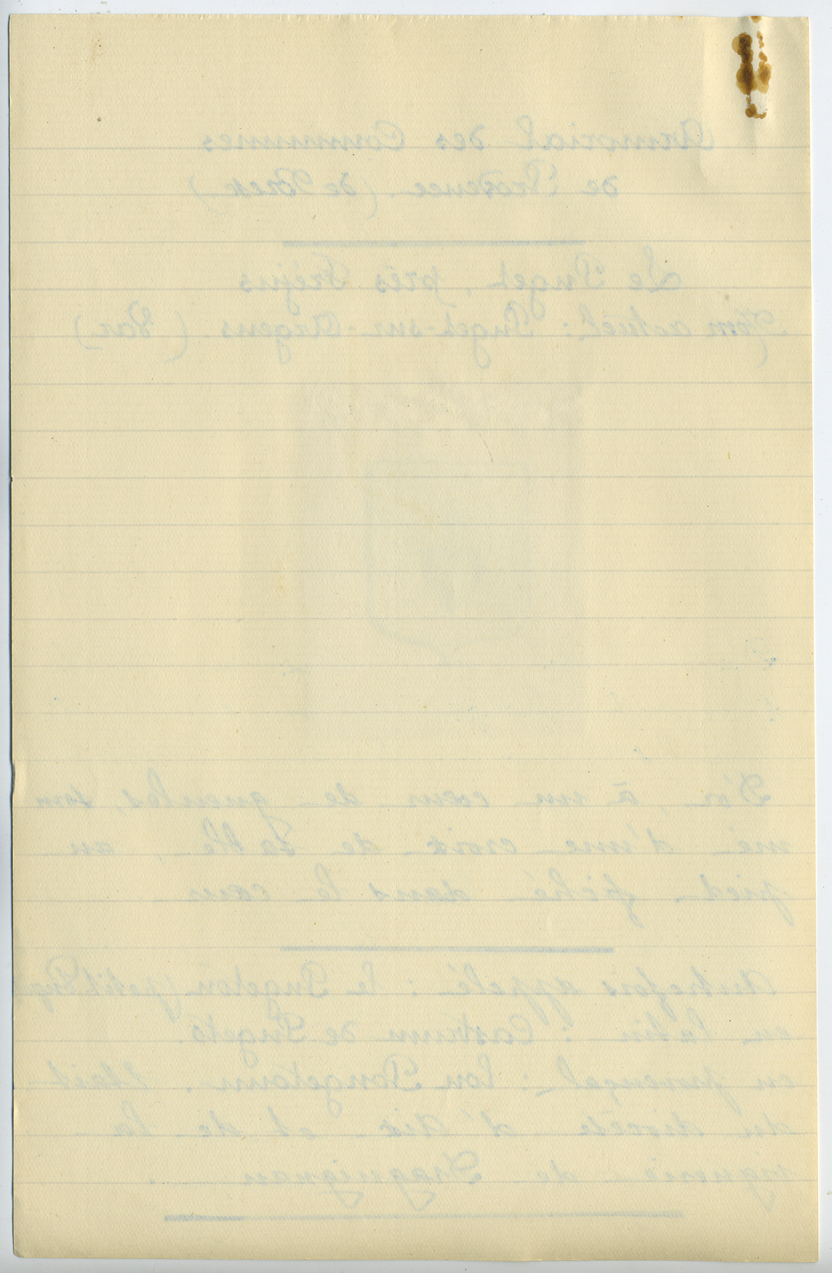 Armorial des Communes
de Provence. (de Bresc)
Le Puget, près Fréjus
(Nom actuel: Puget-sur-Argens (Var)
D'or, à un cœur de gueules, som
mé d'une croix de sable, au
pied fiché dans le cœur
Autrefois appelé: le Pugeton (petit Puget
en latin: Castrum de Pugeto.
en provençal: lou Pougetoun. Etait
du diocèse d'Aix et de la
viguerie de Draguignan.